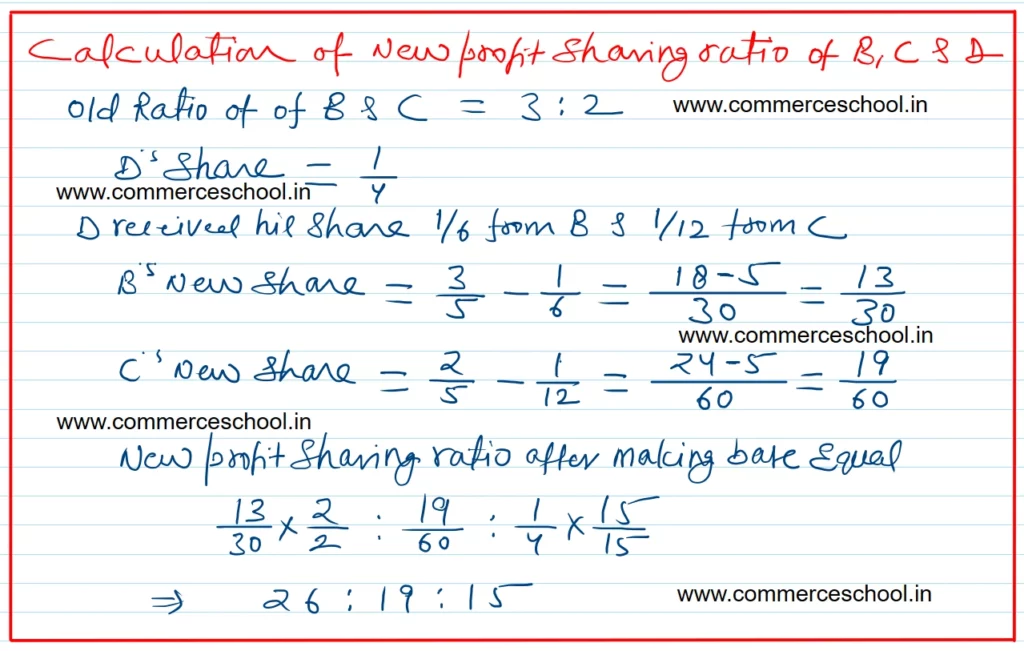 Calculation of New profit Sharing ratio of B, C & D
Old Ratio of of B & C = 3 : 2 www.commerceschool.in
D's Share = 1/4
www.commerceschool.in
D received his Share 1/6 from B & 1/12 from C
B's New Share = 3/5 - 1/6 = 18-5/30 = 13/30
www.commerceschool.in
C's New Share = 2/5 - 1/12 = 24-5/60 = 19/60
www.commerceschool.in
New profit Sharing ratio after making base Equal
13/30 × 2/2 : 19/60 : 1/4 × 15/15
⇒ 26 : 19 : 15 www.commerceschool.in